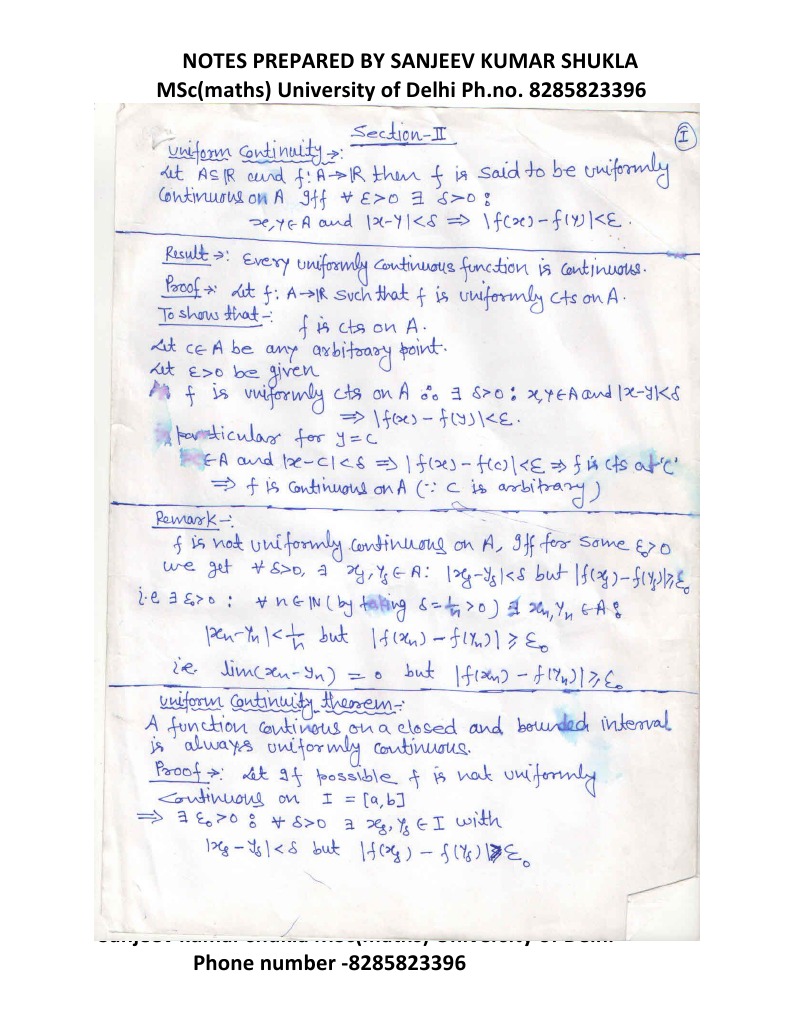 NOTES PREPARED BY SANJEEV KUMAR SHUKLA
MSc(maths) University of Delhi Ph.no. 8285823396
Section-II
I
Uniform Continuity →:
Let A⊆ℝ and f: A→ℝ then f is said to be uniformly
Continuous on A Iff ∀ ε>0 ∃ δ>0 :
x,y∈A and |x-y|<δ ⇒ |f(x)-f(y)|<ε.
Result →: Every uniformly continuous function is continuous.
Proof →: Let f: A→ℝ such that f is uniformly cts on A.
To show that -: f is cts on A.
Let c∈A be any arbitrary point.
Let ε>0 be given
f is uniformly cts on A ∴ ∃ δ>0 : x,y∈A and |x-y|<δ
⇒ |f(x)-f(y)|<ε.
particular for y=c
∈A and |x-c|<δ ⇒ |f(x)-f(c)|<ε ⇒ f is cts at 'c'
⇒ f is continuous on A (∵ c is arbitrary)
Remark -:
f is not uniformly continuous on A, Iff for some ε₀>0
we get ∀ δ>0, ∃ xδ,yδ∈A: |xδ-yδ|<δ but |f(xδ)-f(yδ)|≥ε₀
i.e ∃ ε₀>0 : ∀ n∈ℕ (by taking δ=1/n>0) ∃ xn,yn∈A :
|xn-yn|<1/n but |f(xn)-f(yn)|≥ε₀
i.e. lim(xn-yn) = 0 but |f(xn)-f(yn)|≥ε₀
uniform continuity theorem -:
A function continous on a closed and bounded interval
is always uniformly continuous.
Proof →: Let If possible f is not uniformly
Continuous on I = [a,b]
⇒ ∃ ε₀>0 : ∀ δ>0 ∃ xδ,yδ ∈ I with
|xδ-yδ|<δ but |f(xδ)-f(yδ)|≥ε₀
Phone number -8285823396